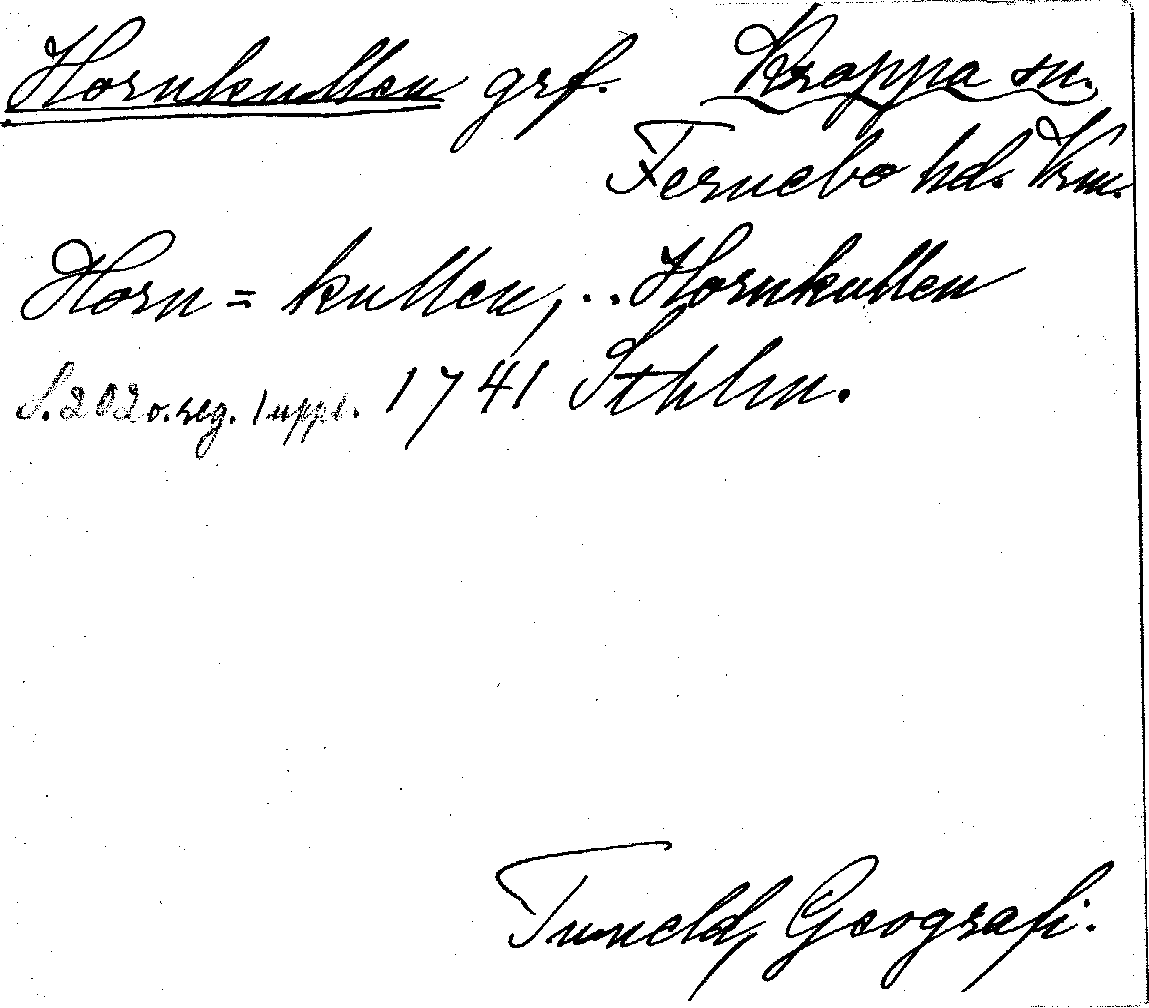 Hornkullen grf. Kroppa sn.
Fernebo hd. Vrm.
Horn=kullen, .. Hornkullen
S. 202 o. reg. 1 uppl. 1741 Sthlm.
Tuneld, Geografi.